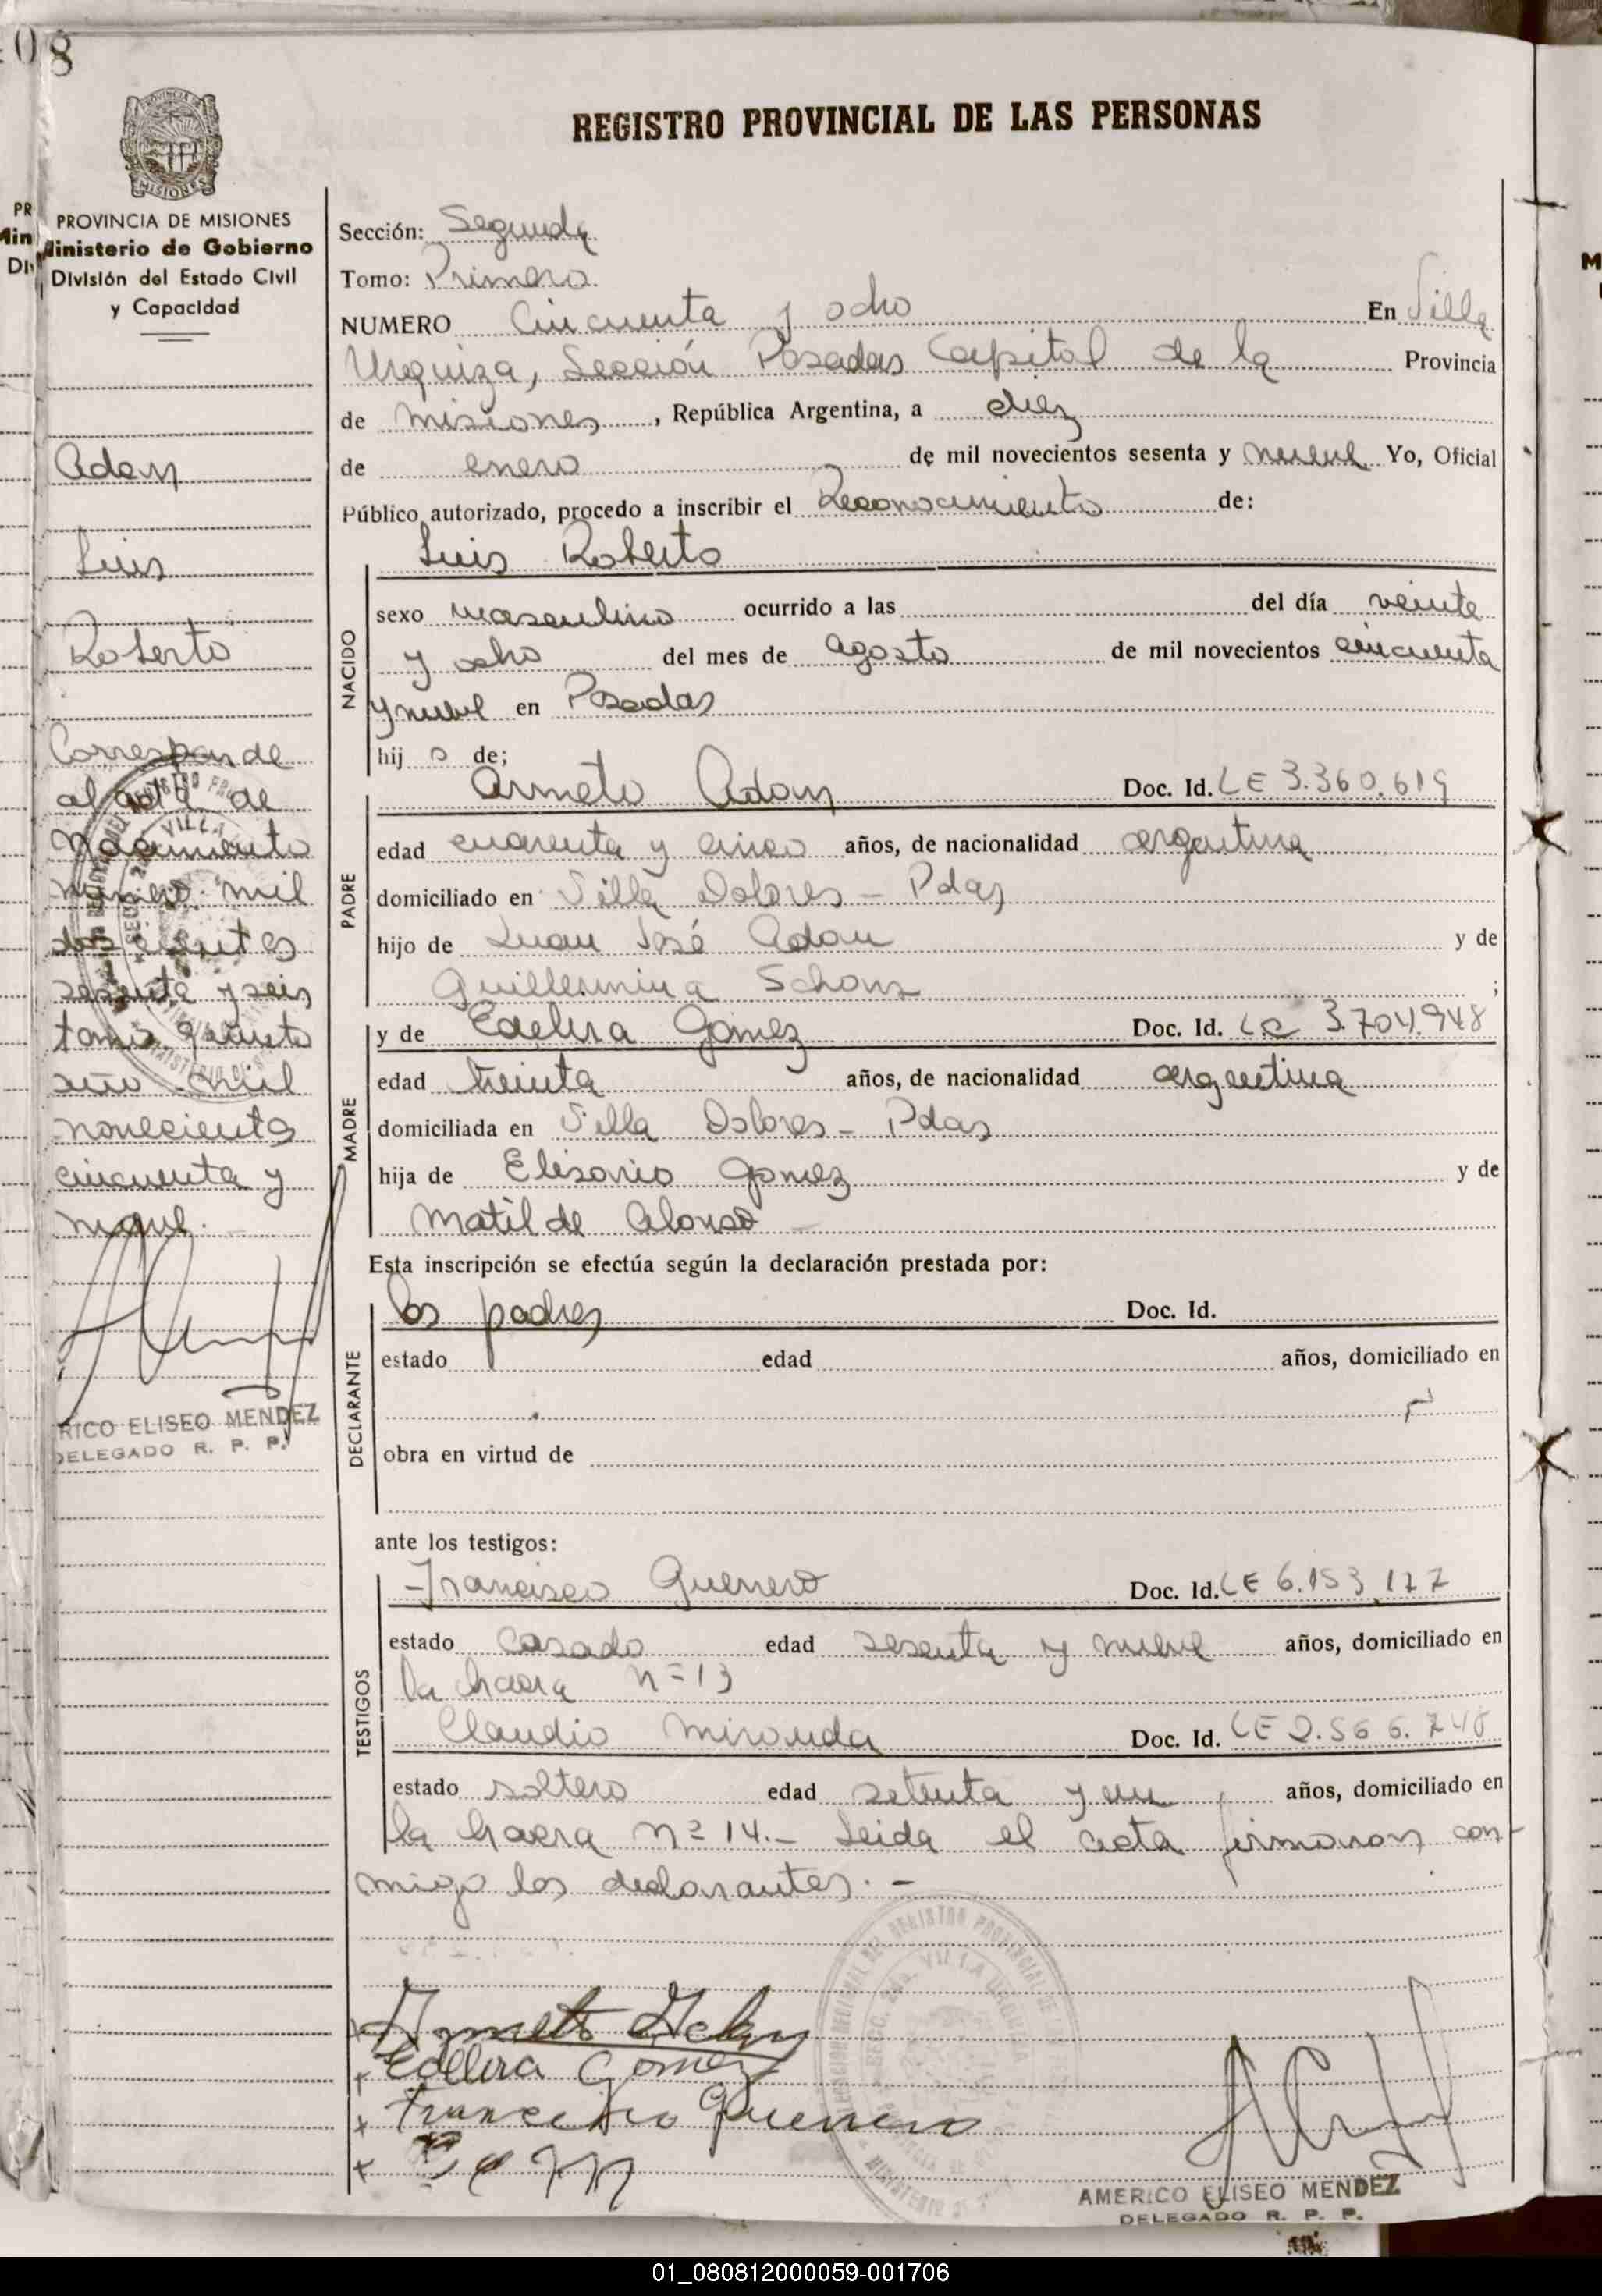 08
REGISTRO PROVINCIAL DE LAS PERSONAS
PROVINCIA DE MISIONES
Ministerio de Gobierno
División del Estado Civil
y Capacidad
Adam
Luis
Roberto
Corresponde
al acta de
Nacimiento
número mil
doscientos
sesenta y seis
tomo quinto
año mil
novecientos
cincuenta y
nueve.
RICO ELISEO MENDEZ
DELEGADO R. P. P.
Sección: Segunda
Tomo: Primero
NUMERO Cincuenta y ocho En Villa
Urquiza, Sección Posadas Capital de la Provincia
de Misiones, República Argentina, a diez
de enero de mil novecientos sesenta y nueve Yo, Oficial
Público autorizado, procedo a inscribir el Reconocimiento de:
Luis Roberto
NACIDO
sexo masculino ocurrido a las del día veinte
y ocho del mes de agosto de mil novecientos cincuenta
y nueve en Posadas
hij o de;
PADRE
Armeto Adam Doc. Id. LE 3.360.619
edad cuarenta y cinco años, de nacionalidad argentina
domiciliado en Villa Dolores - Pdas
hijo de Juan José Adam y de
Guillermina Schons ;
MADRE
y de Edelira Gomez Doc. Id. LC 3.704.948
edad treinta años, de nacionalidad argentina
domiciliada en Villa Dolores - Pdas
hija de Elisario Gomez y de
Matilde Alonso
Esta inscripción se efectúa según la declaración prestada por:
DECLARANTE
los padres Doc. Id.
estado edad años, domiciliado en
obra en virtud de
ante los testigos:
TESTIGOS
Francisco Guerrero Doc. Id. LE 6.153.177
estado casado edad sesenta y nueve años, domiciliado en
la chacra nº 13
Claudio Miranda Doc. Id. LE 2.566.748
estado soltero edad setenta y un años, domiciliado en
la chacra nº 14.- Leida el acta firmaron con-
migo los declarantes.-
Armeto Adam
Edelira Gomez
Francisco Guerrero
AMERICO ELISEO MENDEZ
DELEGADO R. P. P.
01_080812000059-001706